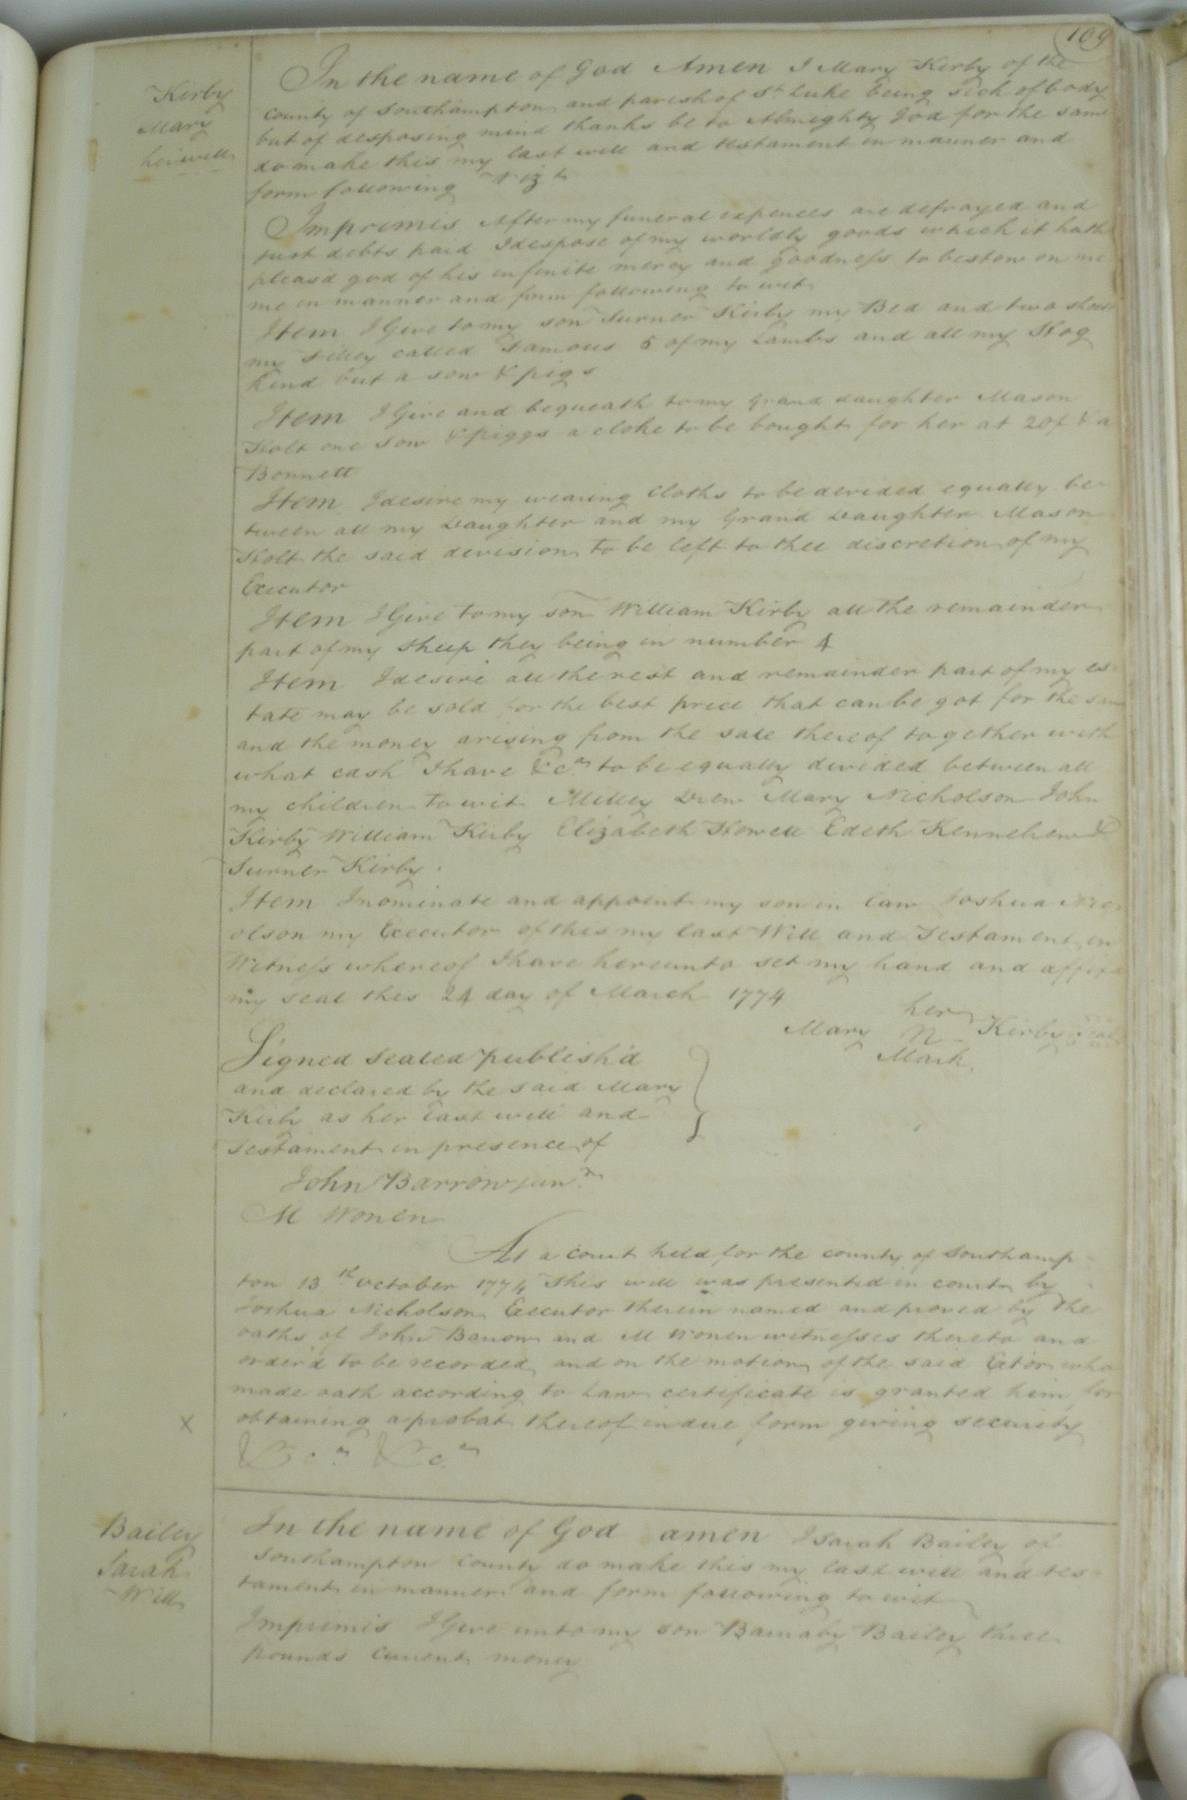 109
Kirby
Mary
her will
In the name of God Amen I Mary Kirby of the
County of Southampton and parish of St Luke being sick of body
but of desposing mind thanks be to Almighty God for the same
do make this my last will and testament in manner and
form following Vizt
Imprimis After my funeral expences are defrayed and
just debts paid I despose of my worldly goods which it hath
pleasd god of his infinite mercy and goodness to bestow on me
me in manner and form following to wit
Item I Give to my son Turner Kirby my Bed and two
my filley called Famous 6 of my Lambs and all my Hog
kind but a sow & pigs
Item I Give and bequeath to my Grand Daughter Mason
Holt one sow & piggs a cloke to be bought for her at 20/ & a
Bonnett
Item I desire my wearing Cloths to be devided equally be-
tween all my Daughter and my Grand Daughter Mason
Holt the said devision to be left to thee discretion of my
Executor
Item I Give to my son William Kirby all the remainder
part of my sheep they being in number 4
Item I desire all the rest and remainder part of my es-
tate may be sold for the best price that can be got for the same
and the money arising from the sale thereof together with
what cash I have &ca to be equally divided between all
my children to wit Milley Drew Mary Nicholson John
Kirby William Kirby Elizabeth Howell Edeth Kennebrew &
Turner Kirby.
Item I nominate and appoint my son in law Joshua Nich
olson my Executor of this my last Will and Testament in
Witness whereof I have hereunto set my hand and affix
my seal this 24 day of March 1774
her
Mary N Kirby seal
Mark
Signed sealed publish'd
and declared by the said Mary
Kirby as her last will and
testament in presence of
John Barrow junr
M Wonen
At a Court held for the county of Southamp-
ton 13th October 1774 This will was presented in court by
Joshua Nicholson Executor therein named and proved by the
oaths of John Barrow and M Wonen witnesses thereto and
order'd to be recorded and on the motion of the said Exōr who
made oath according to Law certificate is granted him for
obtaining a probat thereof in due form giving security
X
&ca &ca
Bailey
Sarah
Will
In the name of God amen I Sarah Bailey of
Southampton County do make this my last will and tes-
tament in manner and form following to wit
Imprimis I Give unto my son Barnaby Bailey three
pounds Current money